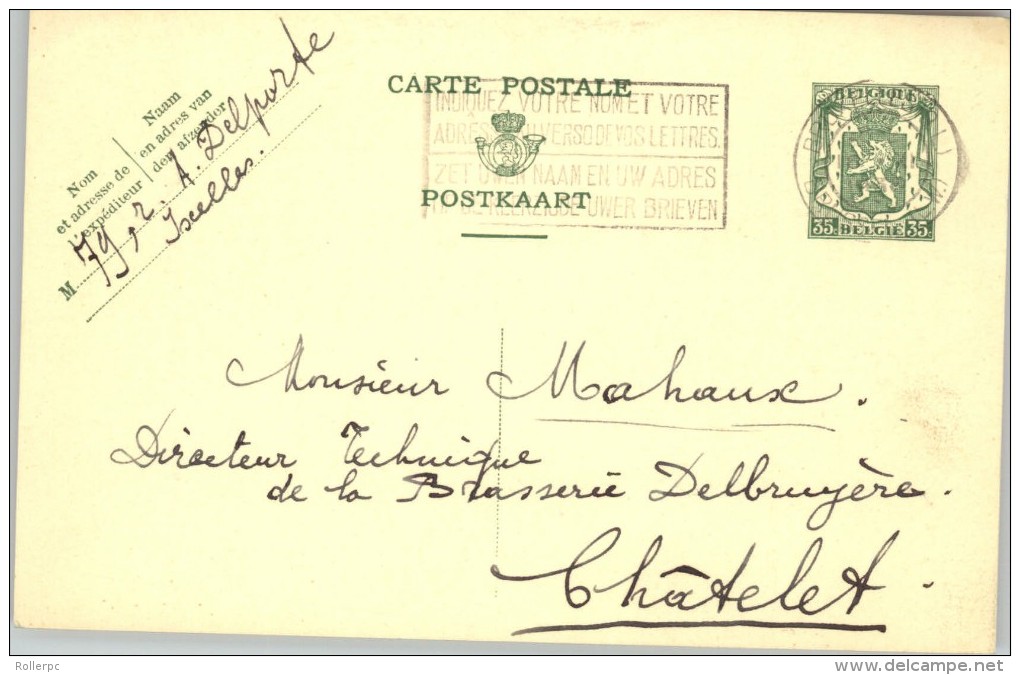 CARTE POSTALE
POSTKAART
Nom
et adresse de
l'expéditeur
Naam
en adres van
den afzender
M 79, r. A. Delporte
Ixelles.
INDIQUEZ VOTRE NOM ET VOTRE
ADRESSE AU VERSO DE VOS LETTRES.
ZET UWEN NAAM EN UW ADRES
OP DE KEERZIJDE UWER BRIEVEN
BELGIQUE
35c BELGIË 35c
Monsieur Mahaux.
Directeur Technique
de la Brasserie Delbruyère.
Châtelet.
Rollerpc
www.delcampe.net